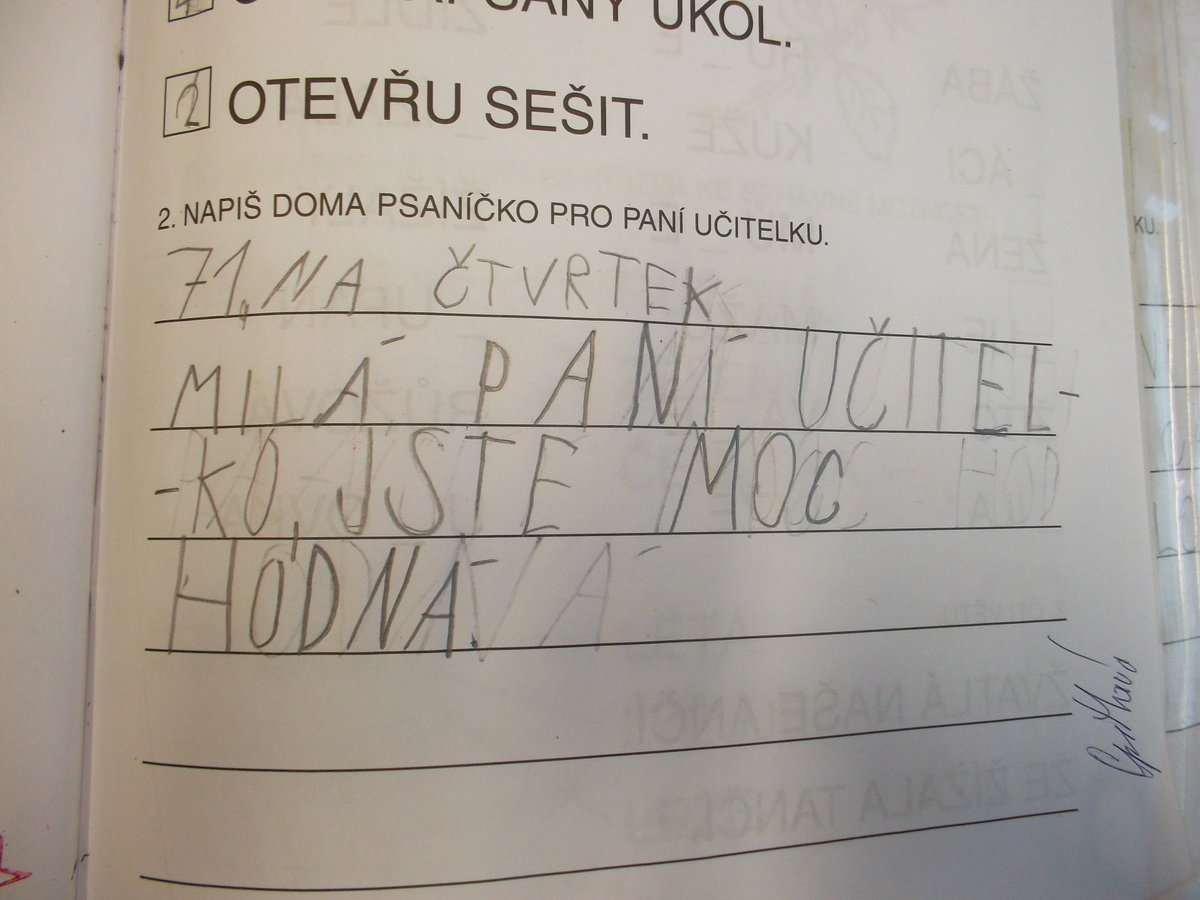 ÚKOL.
2 OTEVŘU SEŠIT.
2. NAPIŠ DOMA PSANÍČKO PRO PANÍ UČITELKU.
71, NA ČTVRTEK
MILÁ PANÍ UČITEL-
-KO, JSTE MOC
HODNÁ.
KU.